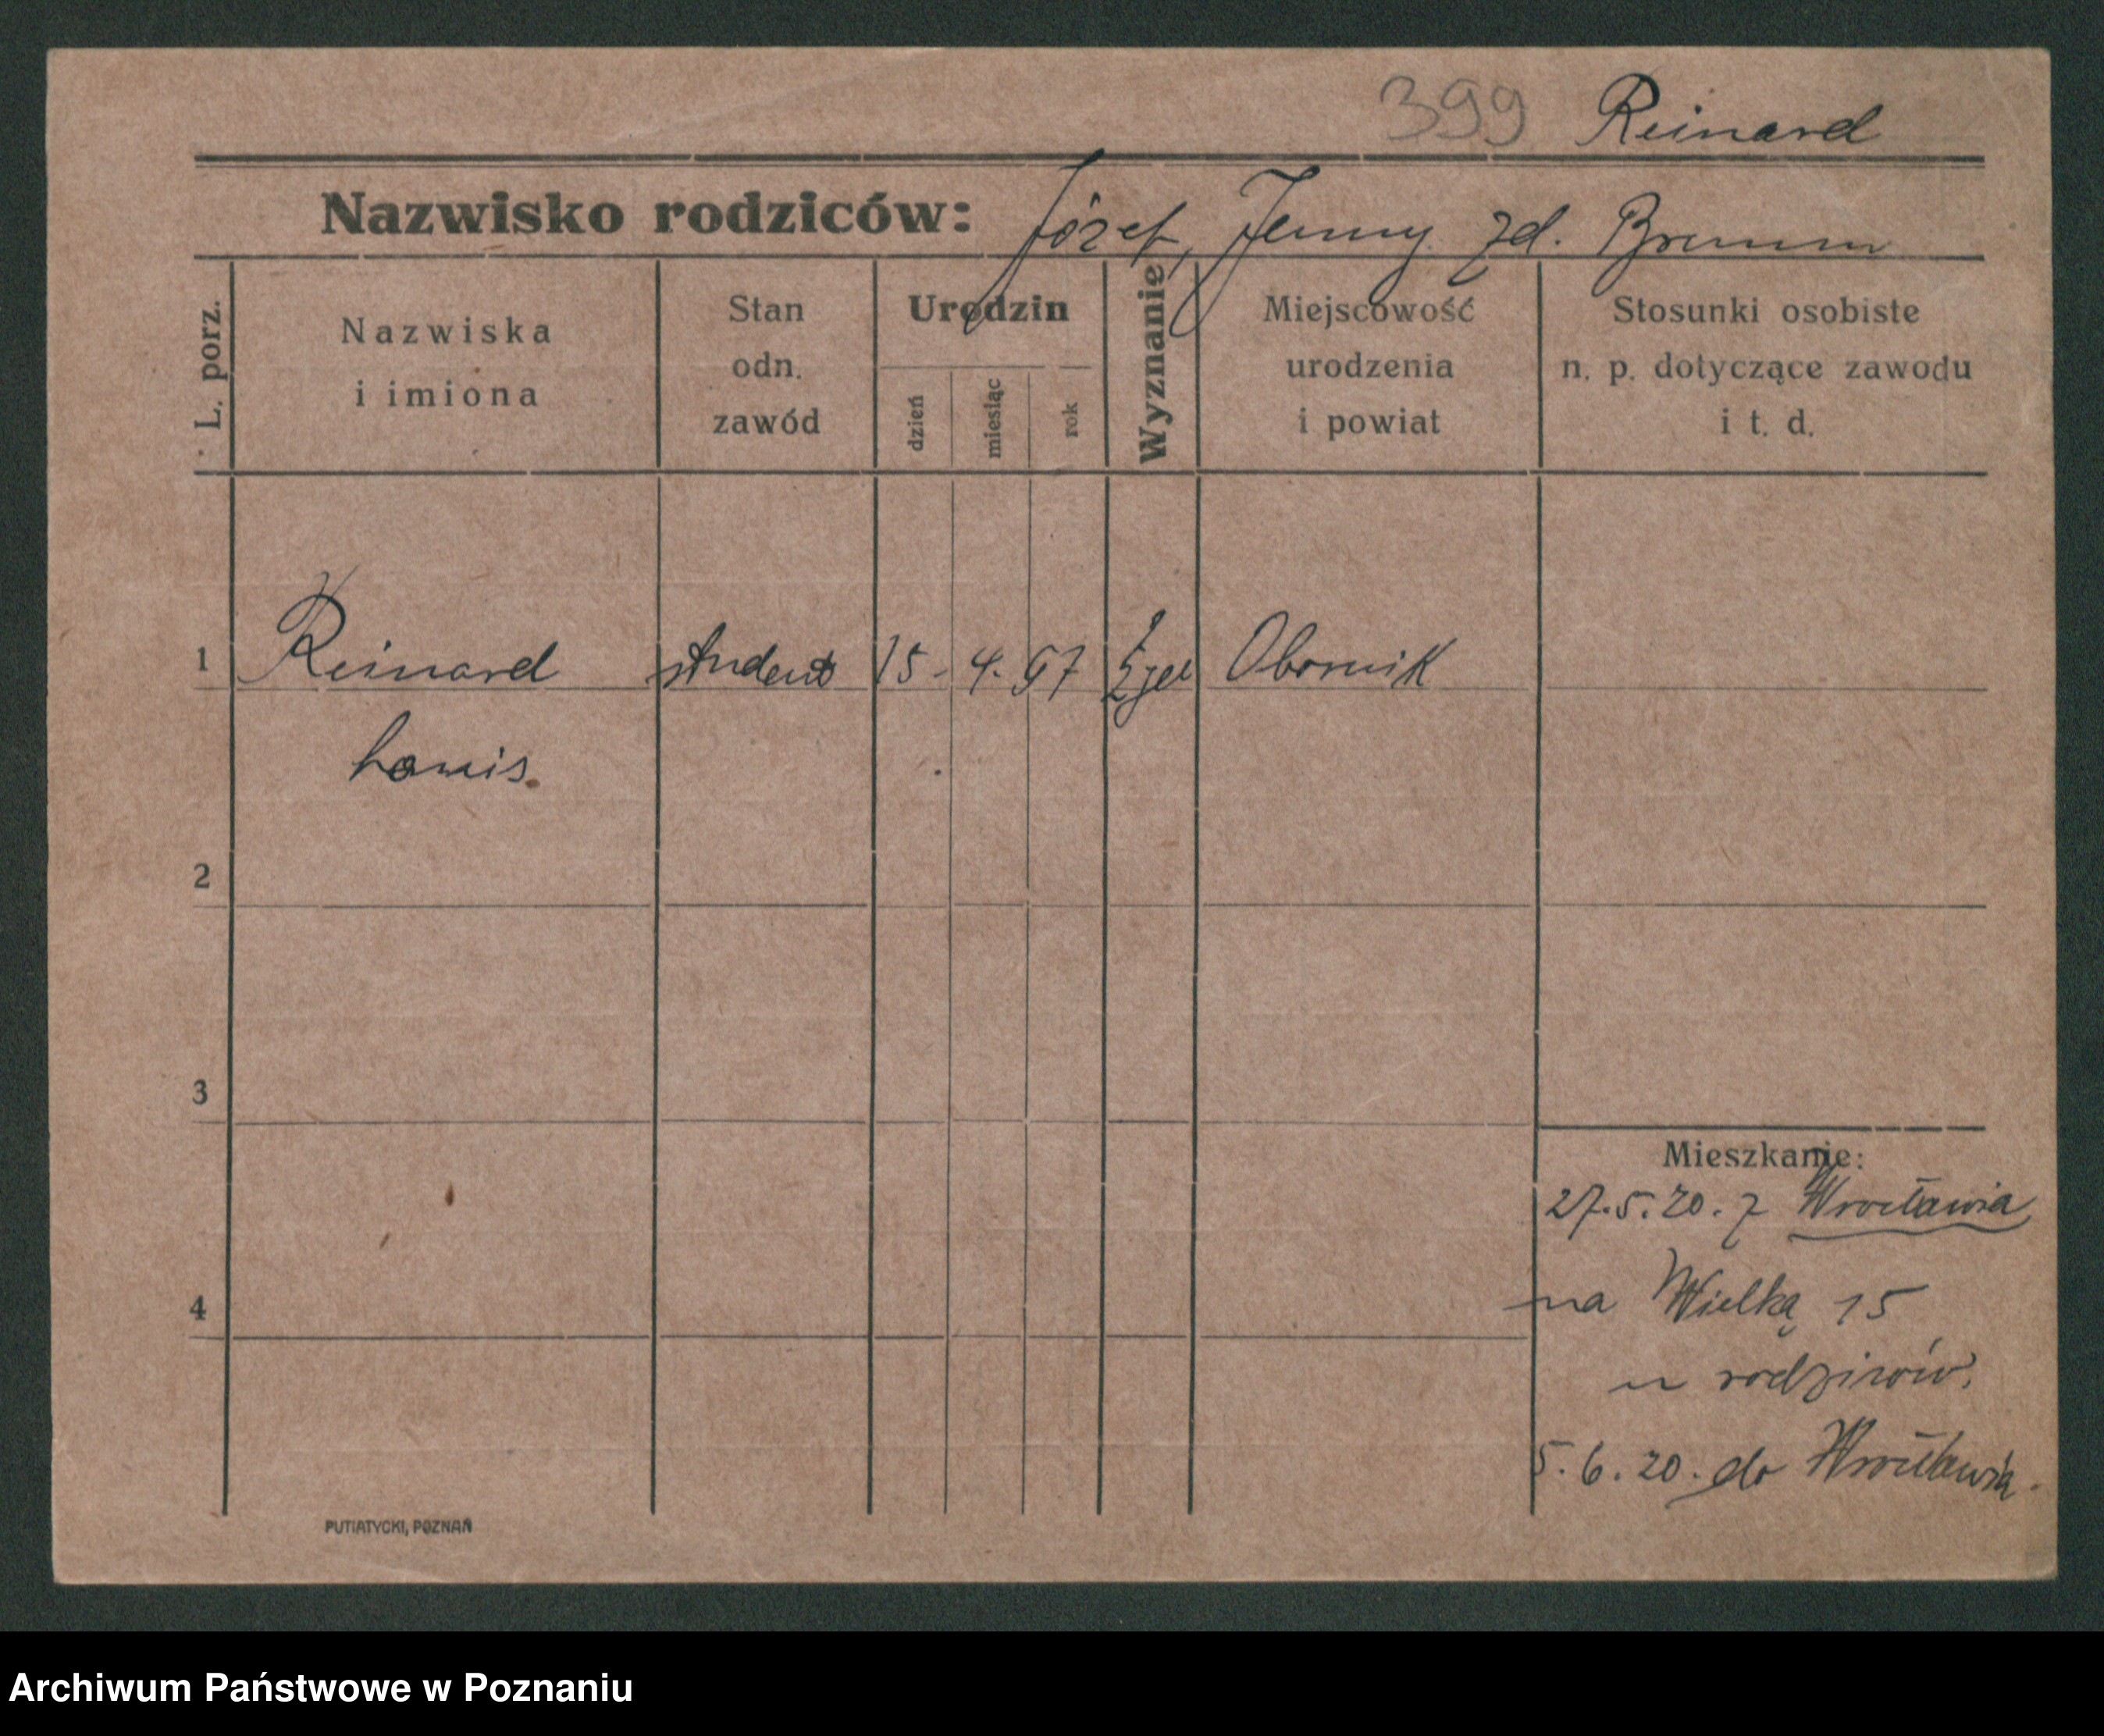 399 Reinard
Nazwisko rodziców: Józef, Jenny zd. Brumm
L. porz.
Nazwiska
i imiona
Stan
odn.
zawód
Urodzin
dzień
miesiąc
rok
Wyznanie
Miejscowość
urodzenia
i powiat
Stosunki osobiste
n. p. dotyczące zawodu
i t. d.
1 Reinard student 15. 4. 97 Obornik
Louis.
2
3
4
Mieszkanie:
27.5.20. z Wrocławia
na Wielką 15
u rodziców.
5.6.20. do Wrocławia.
PUTIATYCKI, POZNAŃ
Archiwum Państwowe w Poznaniu